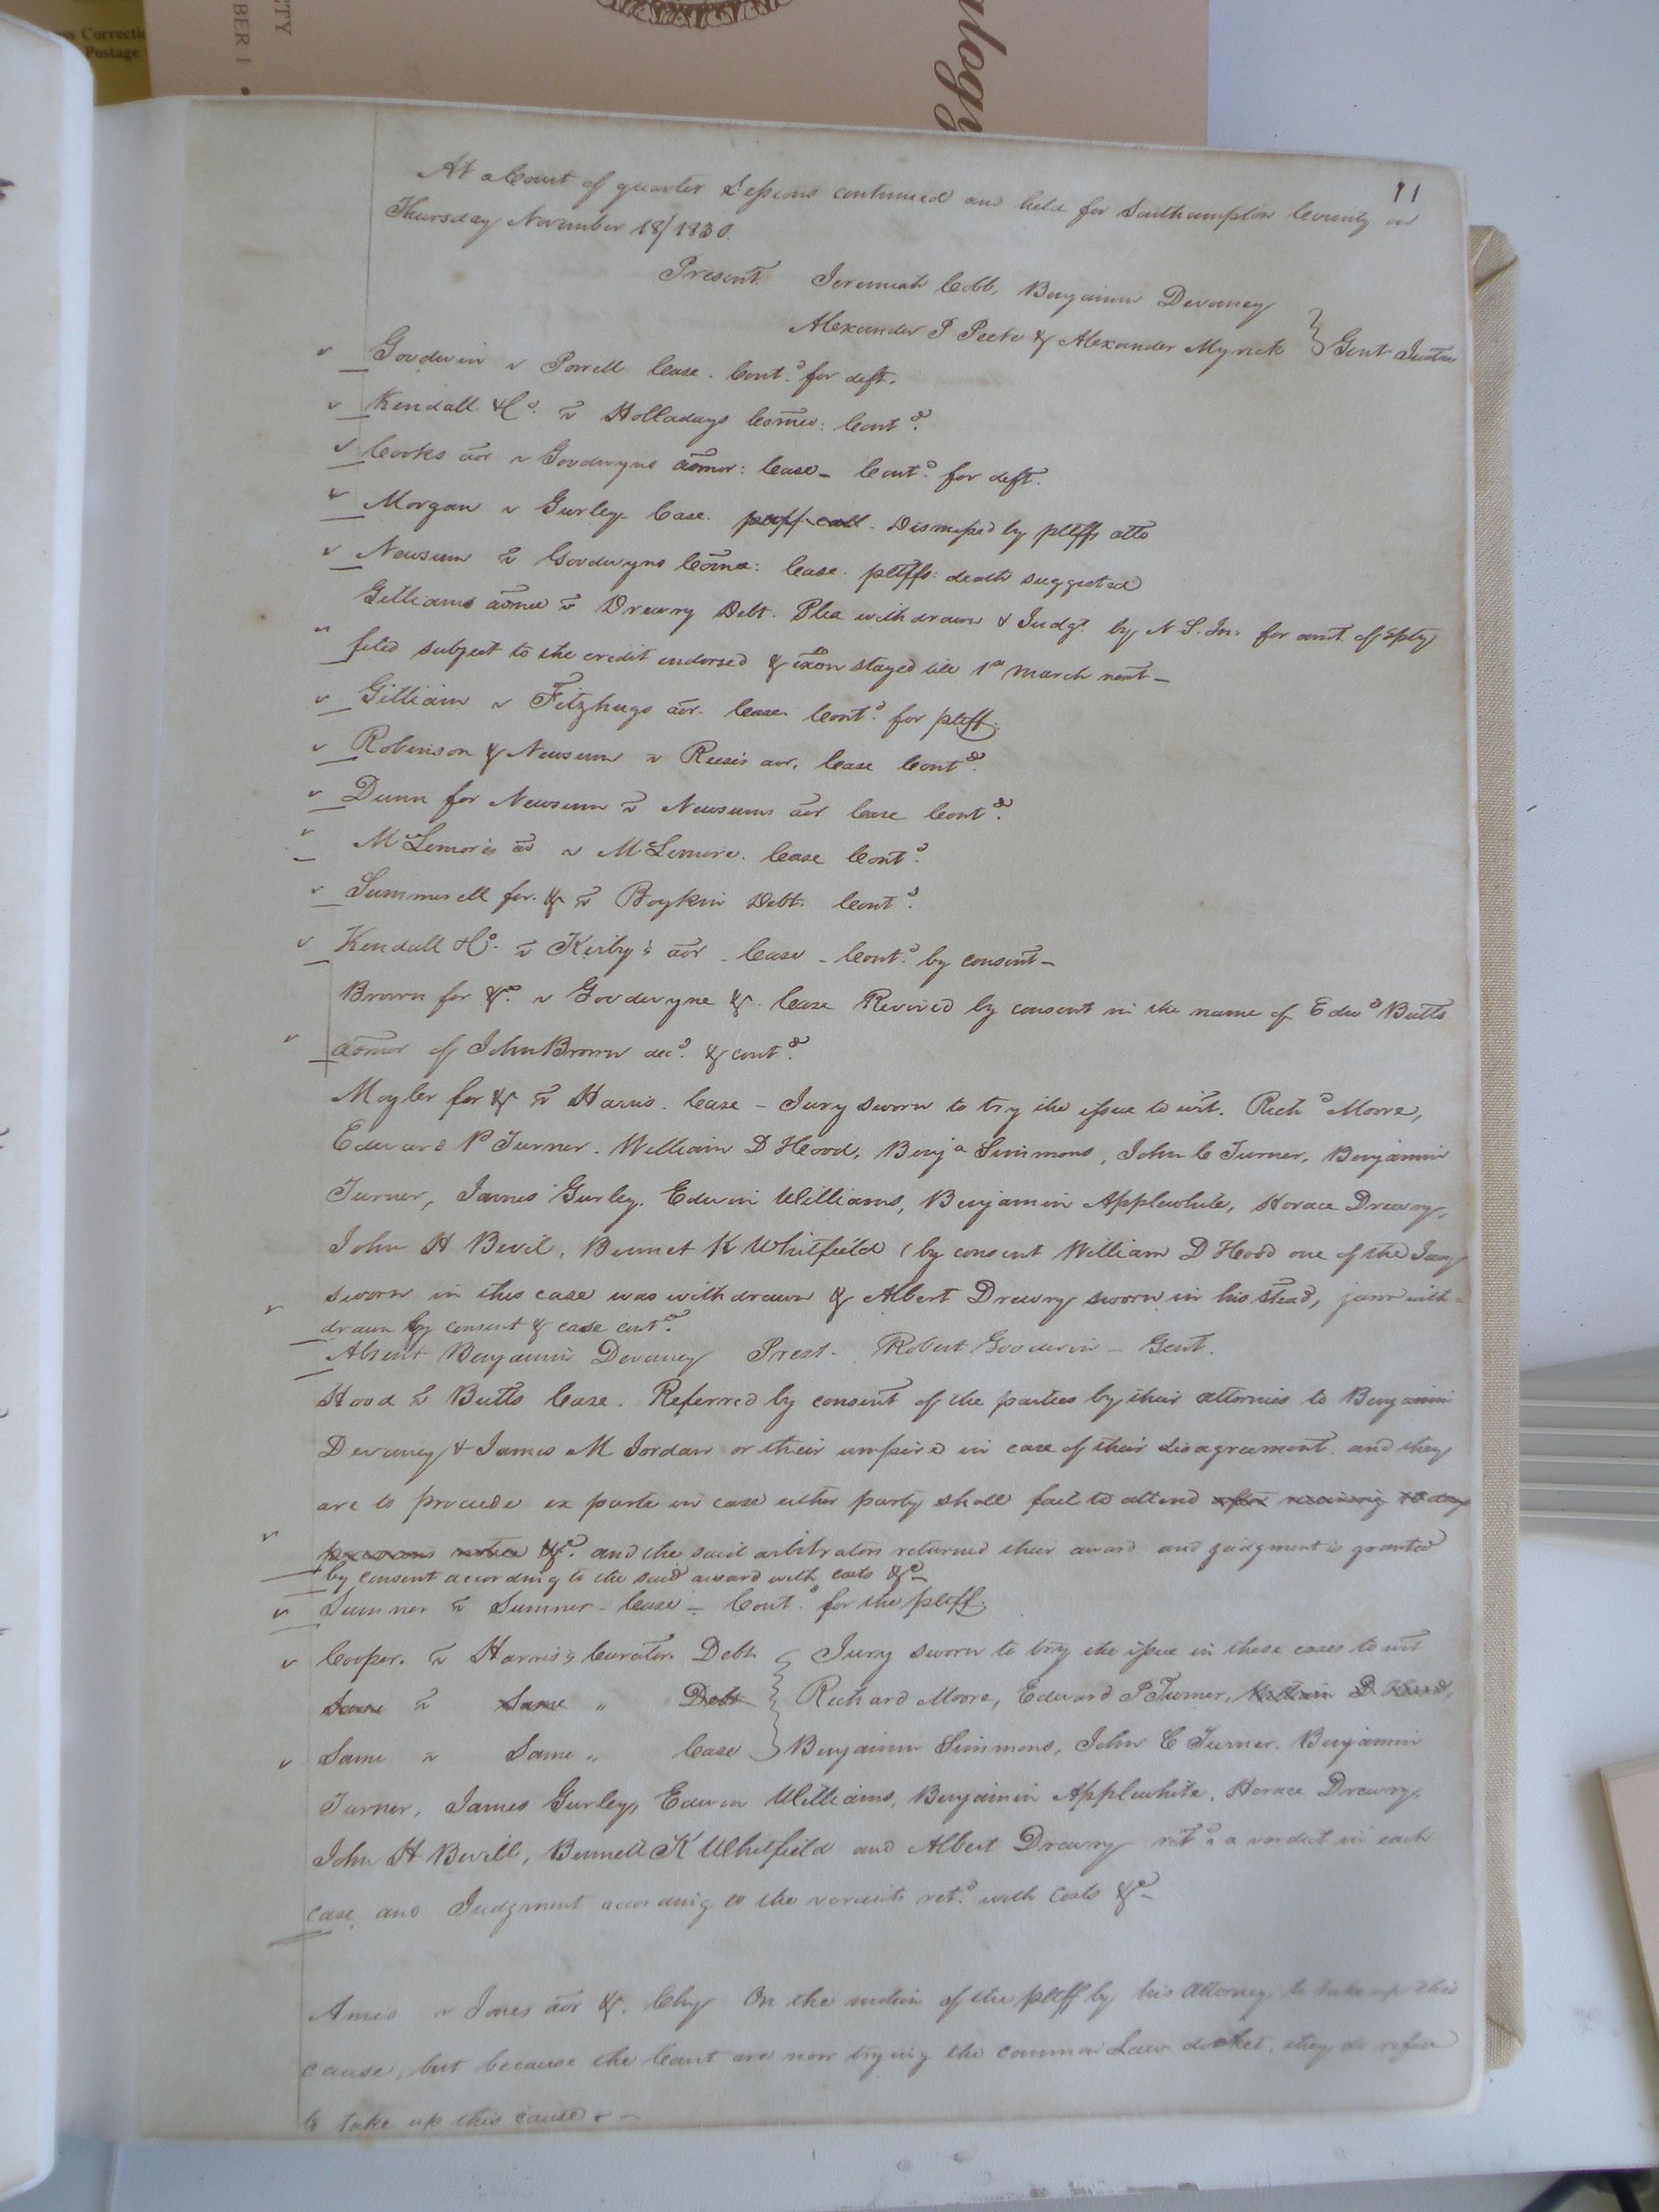 ss Correctio
Postage
BER 1 •
CTY
alogy
11
At a Court of quarter Sessions continued and held for Southampton County on
Thursday November 18/1830.
Present. Jeremiah Cobb, Benjamin Devaney
Alexander P Peete & Alexander Myrick } Gent Justices
Goodwin v Porrell Case. Cont.d for deft.
Kendall &Co. v Holladays Comee: Cont.d
Cooks aor v Goodwyns admor: Case - Cont.d for deft.
Morgan v Gurley. Case. Dismissed by pltffs atto
Newsum v Goodwyns Comee: Case. pltffs: death suggested
Gilliams v Drewry Debt. Plea withdrawn & Judgt. by N. S. In. for amt of spty
filed subject to the credit endorsed & exon stayed till 1st March next -
Gilliam v Fitzhugs aor. Case Cont.d for pltff.
Robinson & Newsum v Reeses aor. Case Cont.d
Dunn for Newsum v Newsums aor Case Cont.d
McLemores ad v McLemore. Case Cont.d
Summerell for. & v Boykin Debt. Cont.d
Kendall &Co. v Kirby's aor - Case - Cont.d by consent -
Brown for &c. v Goodwyne &. Case Revived by consent in the name of Edwd Butts
admor of John Brown decd. & cont.d
Moyler for & v Harris. Case - Jury sworn to try the issue to wit. Richd Moore,
Edward P Turner. William D Hood, Benja Simmons, John C Turner, Benjamin
Turner, James Gurley, Edwin Williams, Benjamin Applewhite, Horace Drewry,
John H Bevil, Bennet K Whitfield (by consent William D Hood one of the Jury
sworn in this case was withdrawn & Albert Drewry sworn in his stead, juror with=
drawn by consent & case cont.d
Absent Benjamin Devaney Prest. Robert Goodwin - Gent.
Hood v Butts Case. Referred by consent of the parties by their attornies to Benjamin
Devaney & James M Jordan or their umpire in case of their disagreement. and they
are to proceede ex parte in case either party shall fail to attend after receiving 10 days
previous notice &c. and the said arbitrators returned their award and judgment is granted
by consent according to the said award with costs &c -
Sumner v Sumner - Case - Cont.d for the pltff.
Cooper. v Harris's Curator. Debt. } Jury sworn to try the issue in these cases to wit
Same v Same " Debt } Richard Moore, Edward P Turner, William D Hood,
Same v Same " Case } Benjamin Simmons, John C Turner. Benjamin
Turner, James Gurley, Edwin Williams, Benjamin Applewhite, Horace Drewry,
John H Bevill, Bennett K Whitfield and Albert Drewry retd a verdict in each
case and Judgment according to the verdicts ret.d with Costs &c -
Amis v Jones aor &. Chy On the motion of the pltff by his Attorney to take up this
cause, but because the Court are now trying the common Law docket, they do refuse
to take up this cause